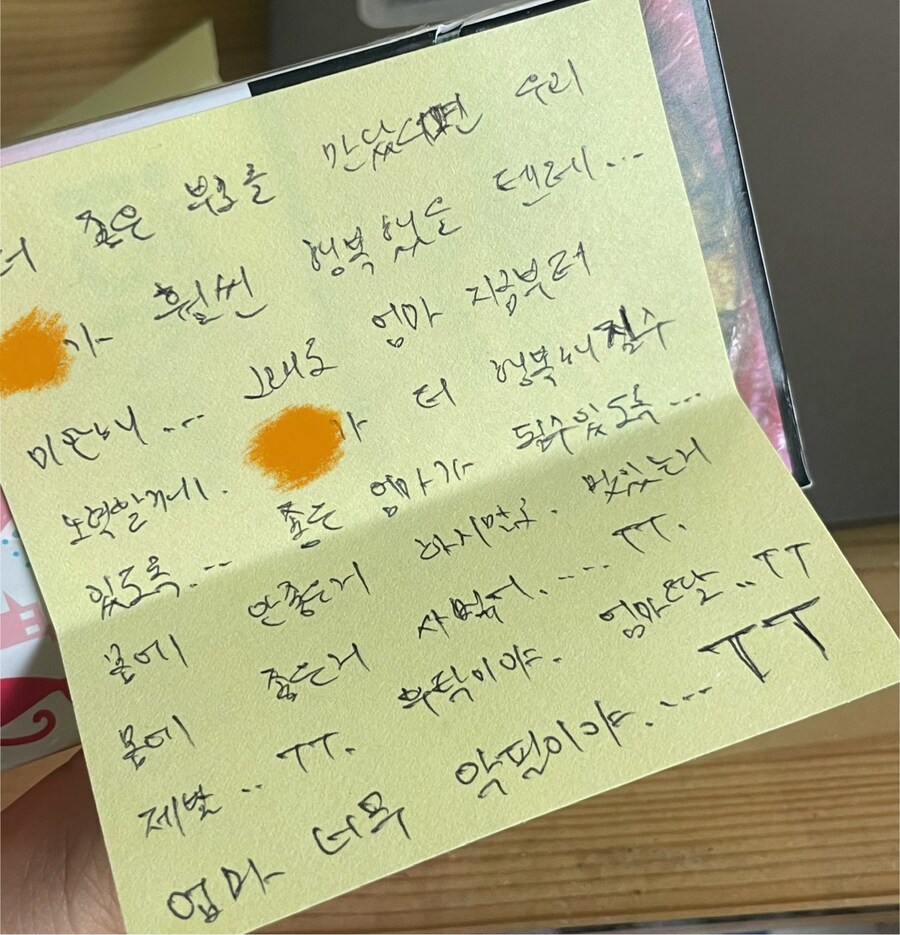 더 좋은 부모를 만났으면 우리
가 훨씬 행복했을 텐데...
미안해... 그래도 엄마 지금부터
노력할께. 가 더 행복해질수
있도록... 좋은 엄마가 될수있도록...
몸에 안좋은거 하지말고. 맛있는거
몸에 좋은거 사먹어.... TT.
제발.. TT. 부탁이야. 엄마딸..TT
엄마 너무 악필이야....TT